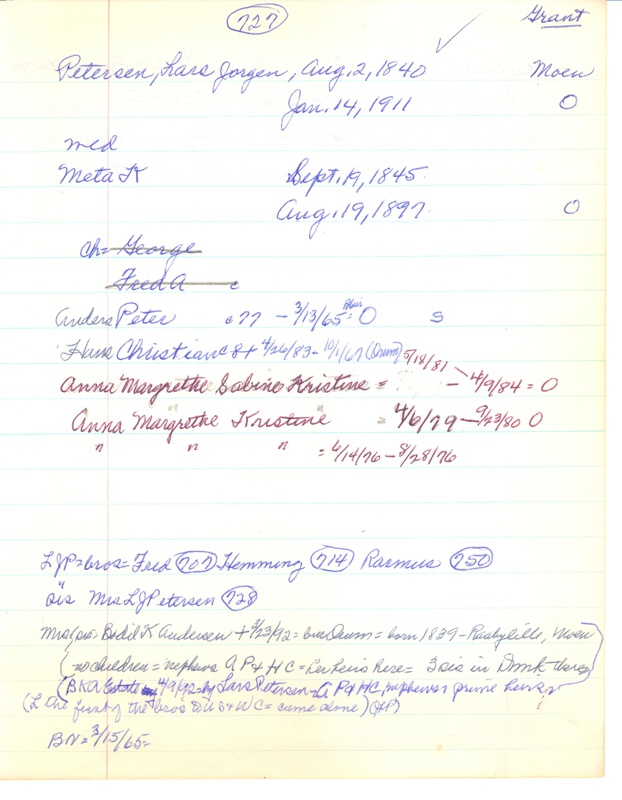 727
Grant
Petersen, Lars Jorgen, Aug. 2, 1840 Moen
Jan. 14, 1911 O
med
Meta K Sept. 19, 1845
Aug. 19, 1897 O
ch= George
Fred A c
Anders Peter c77 - 3/13/65 = Blair O S
Hans Christian c8+ 4/26/83 - 10/1/67 (Orum) 5/18/81
Anna Margrethe Sabine Kristine = - 4/9/84 = O
Anna Margrethe Kristine = 4/6/79 - 9/23/80 O
" " " = 6/14/76 - 8/28/76
LJP = bros = Fred 707 Hemming 714 Rasmus 750
sis Mrs LJ Petersen 728
Bodil K Andersen + 3/23/92 = bur Orum = born 1839 - Moen
no children = nephews A P + H C = heirs here = 3 sis in Dmk
(BKA Estate 4/9/92 by Lars Petersen - A P + HC, nephews + prime heirs
(L the first of the bros to US + WC = came alone)
BN = 3/15/65 =